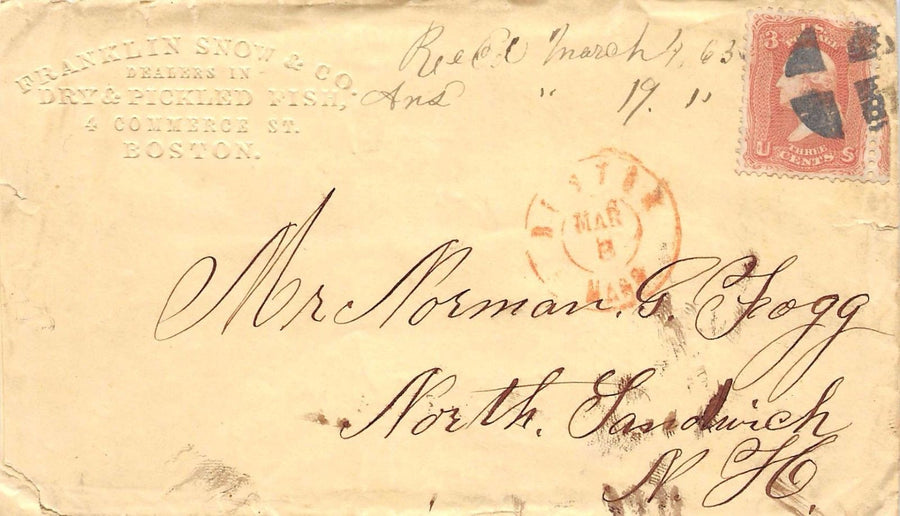 FRANKLIN SNOW & CO.
DEALERS IN
DRY & PICKLED FISH,
4 COMMERCE ST.
BOSTON.
Recd March 63
Ans " 19. "
3
U THREE S
CENTS
BOSTON
MAR
MASS
Mr Norman. G. Fogg
North. Sandwich
N. H